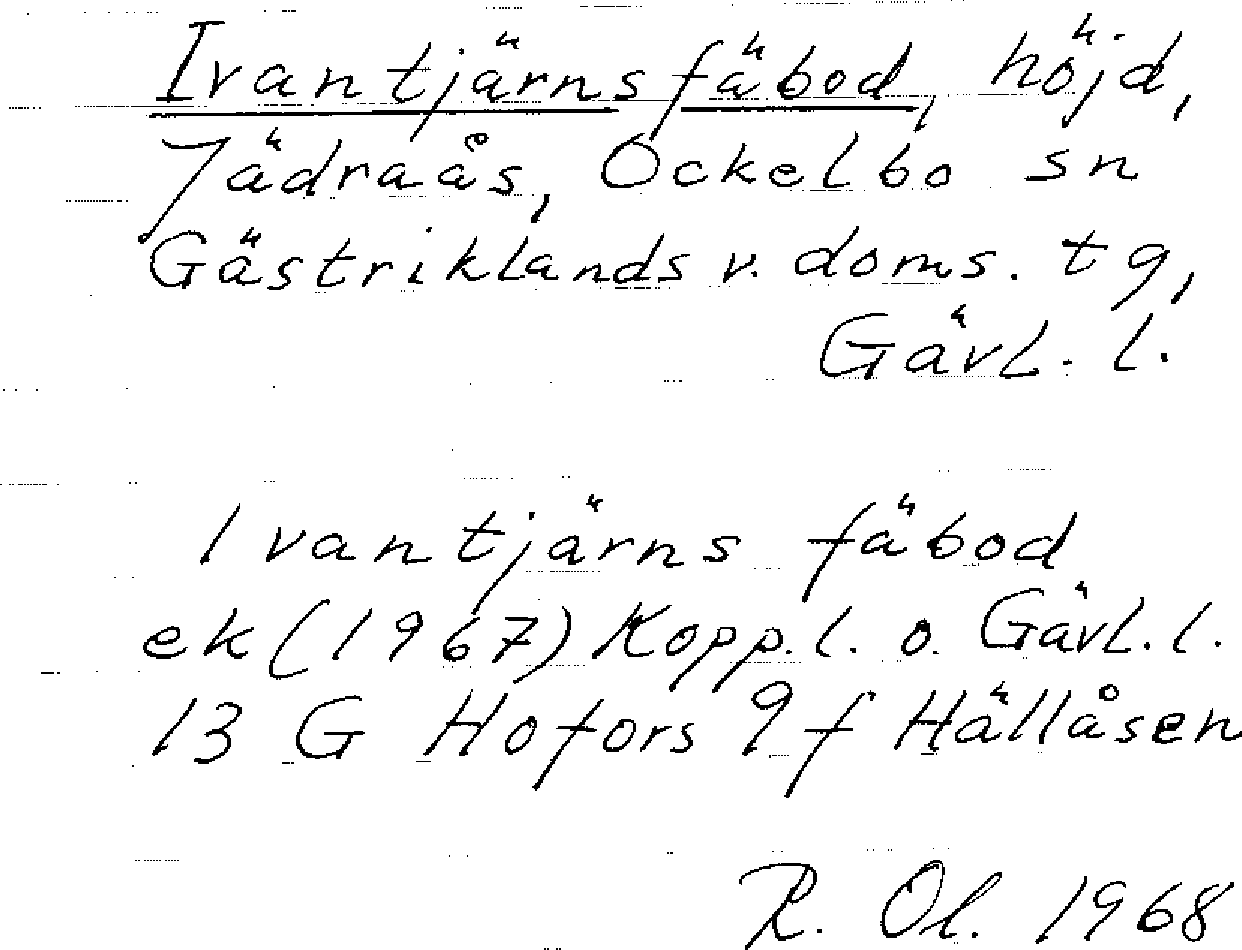 Ivantjärns fäbod, höjd,
Jädraås, Ockelbo sn
Gästriklands v. doms. tg,
Gävl. l.
Ivantjärns fäbod
ek (1967) Kopp. l. o. Gävl. l.
13 G Hofors 9 f Hällåsen
R. Ol. 1968